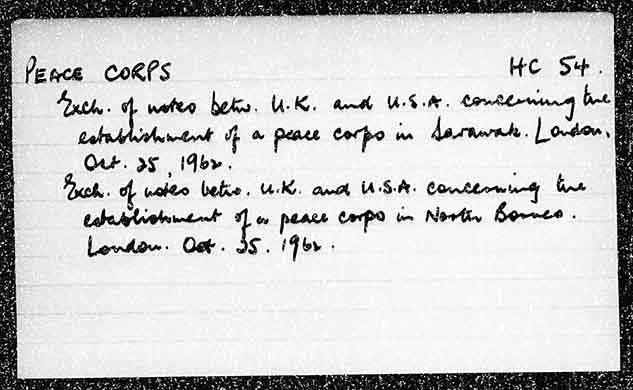 PEACE CORPS HC 54.
Exch. of notes betw. U.K. and U.S.A. concerning the
establishment of a peace corps in Sarawak. London,
Oct. 25, 1962.
Exch. of notes betw. U.K. and U.S.A. concerning the
establishment of a peace corps in North Borneo.
London. Oct. 25. 1962.